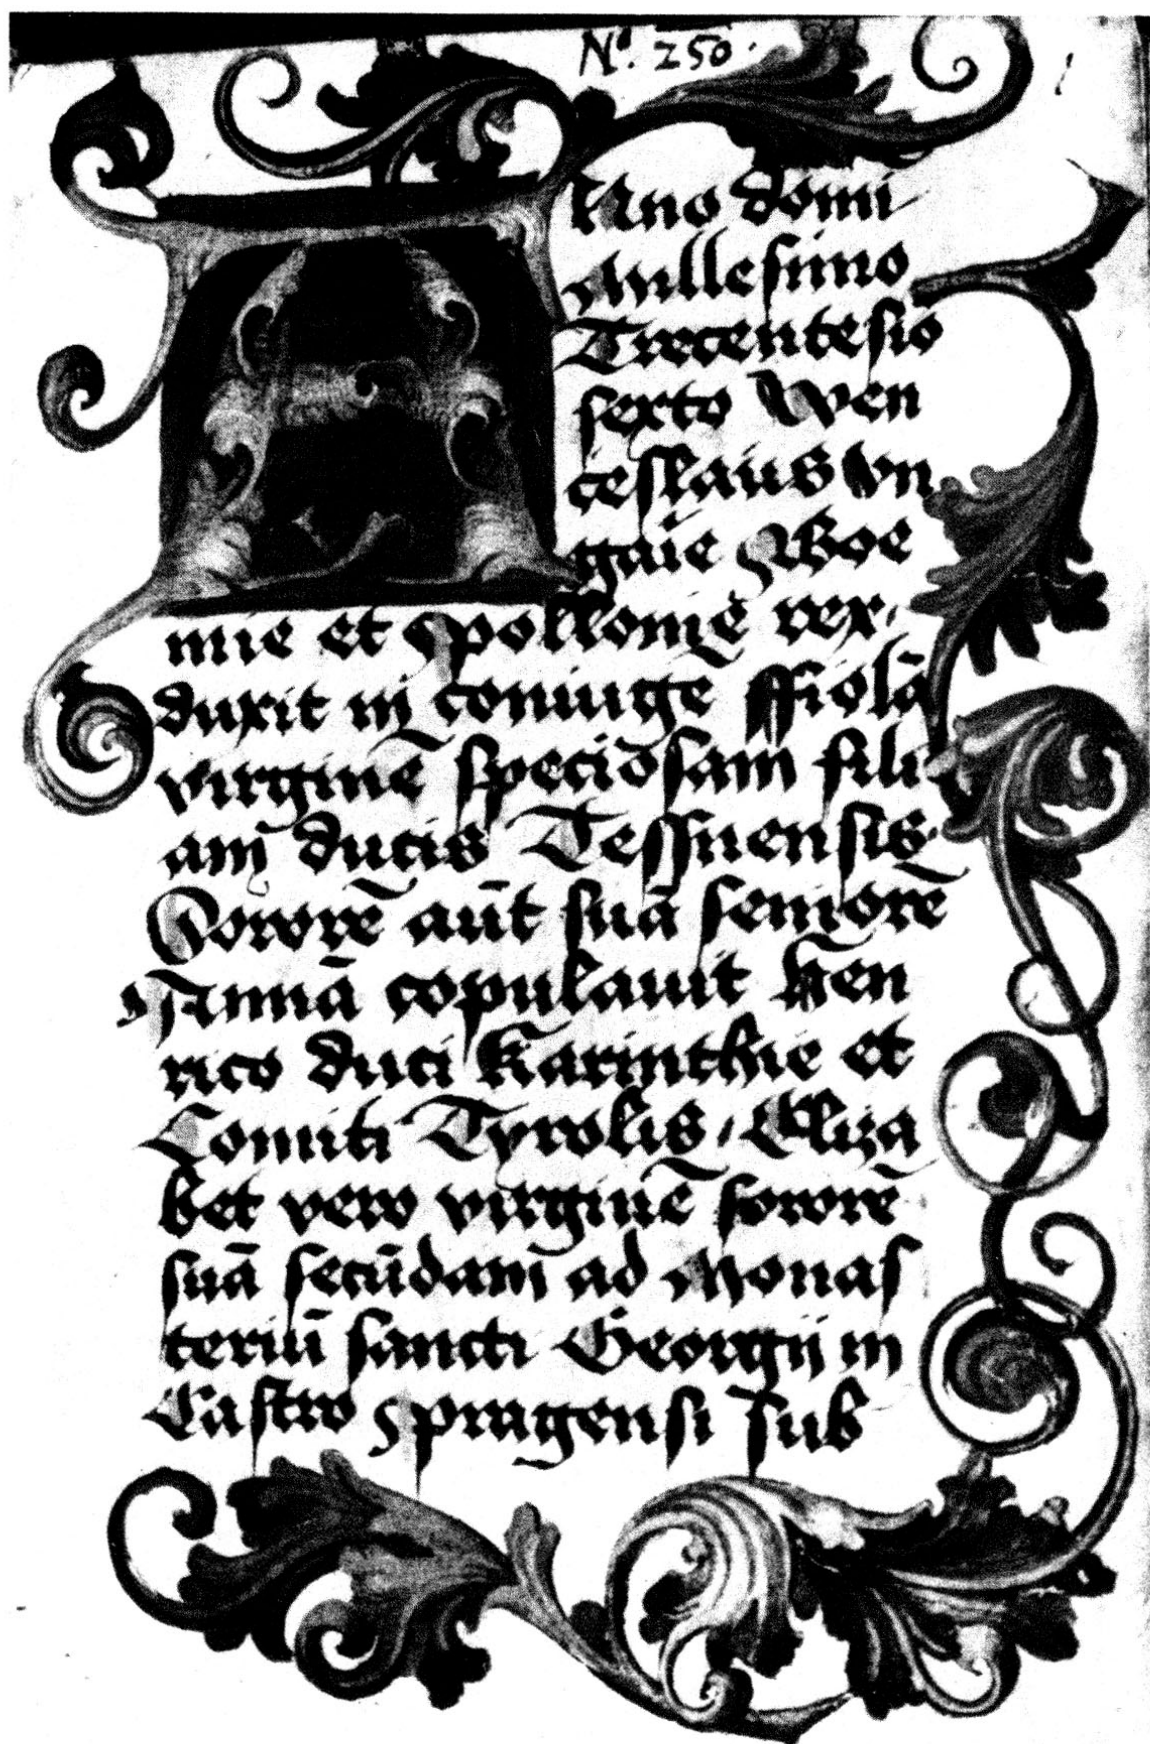 Nº. 250.
Anno domi
Millesimo
Trecentesīo
sexto Wen
ceslaus vn
gaīe Boe
mie et Pollonie rex.
duxit in coniugē ffiolā
virginē speciosam fili
am ducis Tessinensis.
Sororē aūt suā seniorē
Annā copulauit Hen
rico duci Karinthie et
Comiti Tyrolis, Eliza
bet vero virginē sororē
suā secūdam ad Monas
teriū sancti Georgij in
Castro pragensi sub